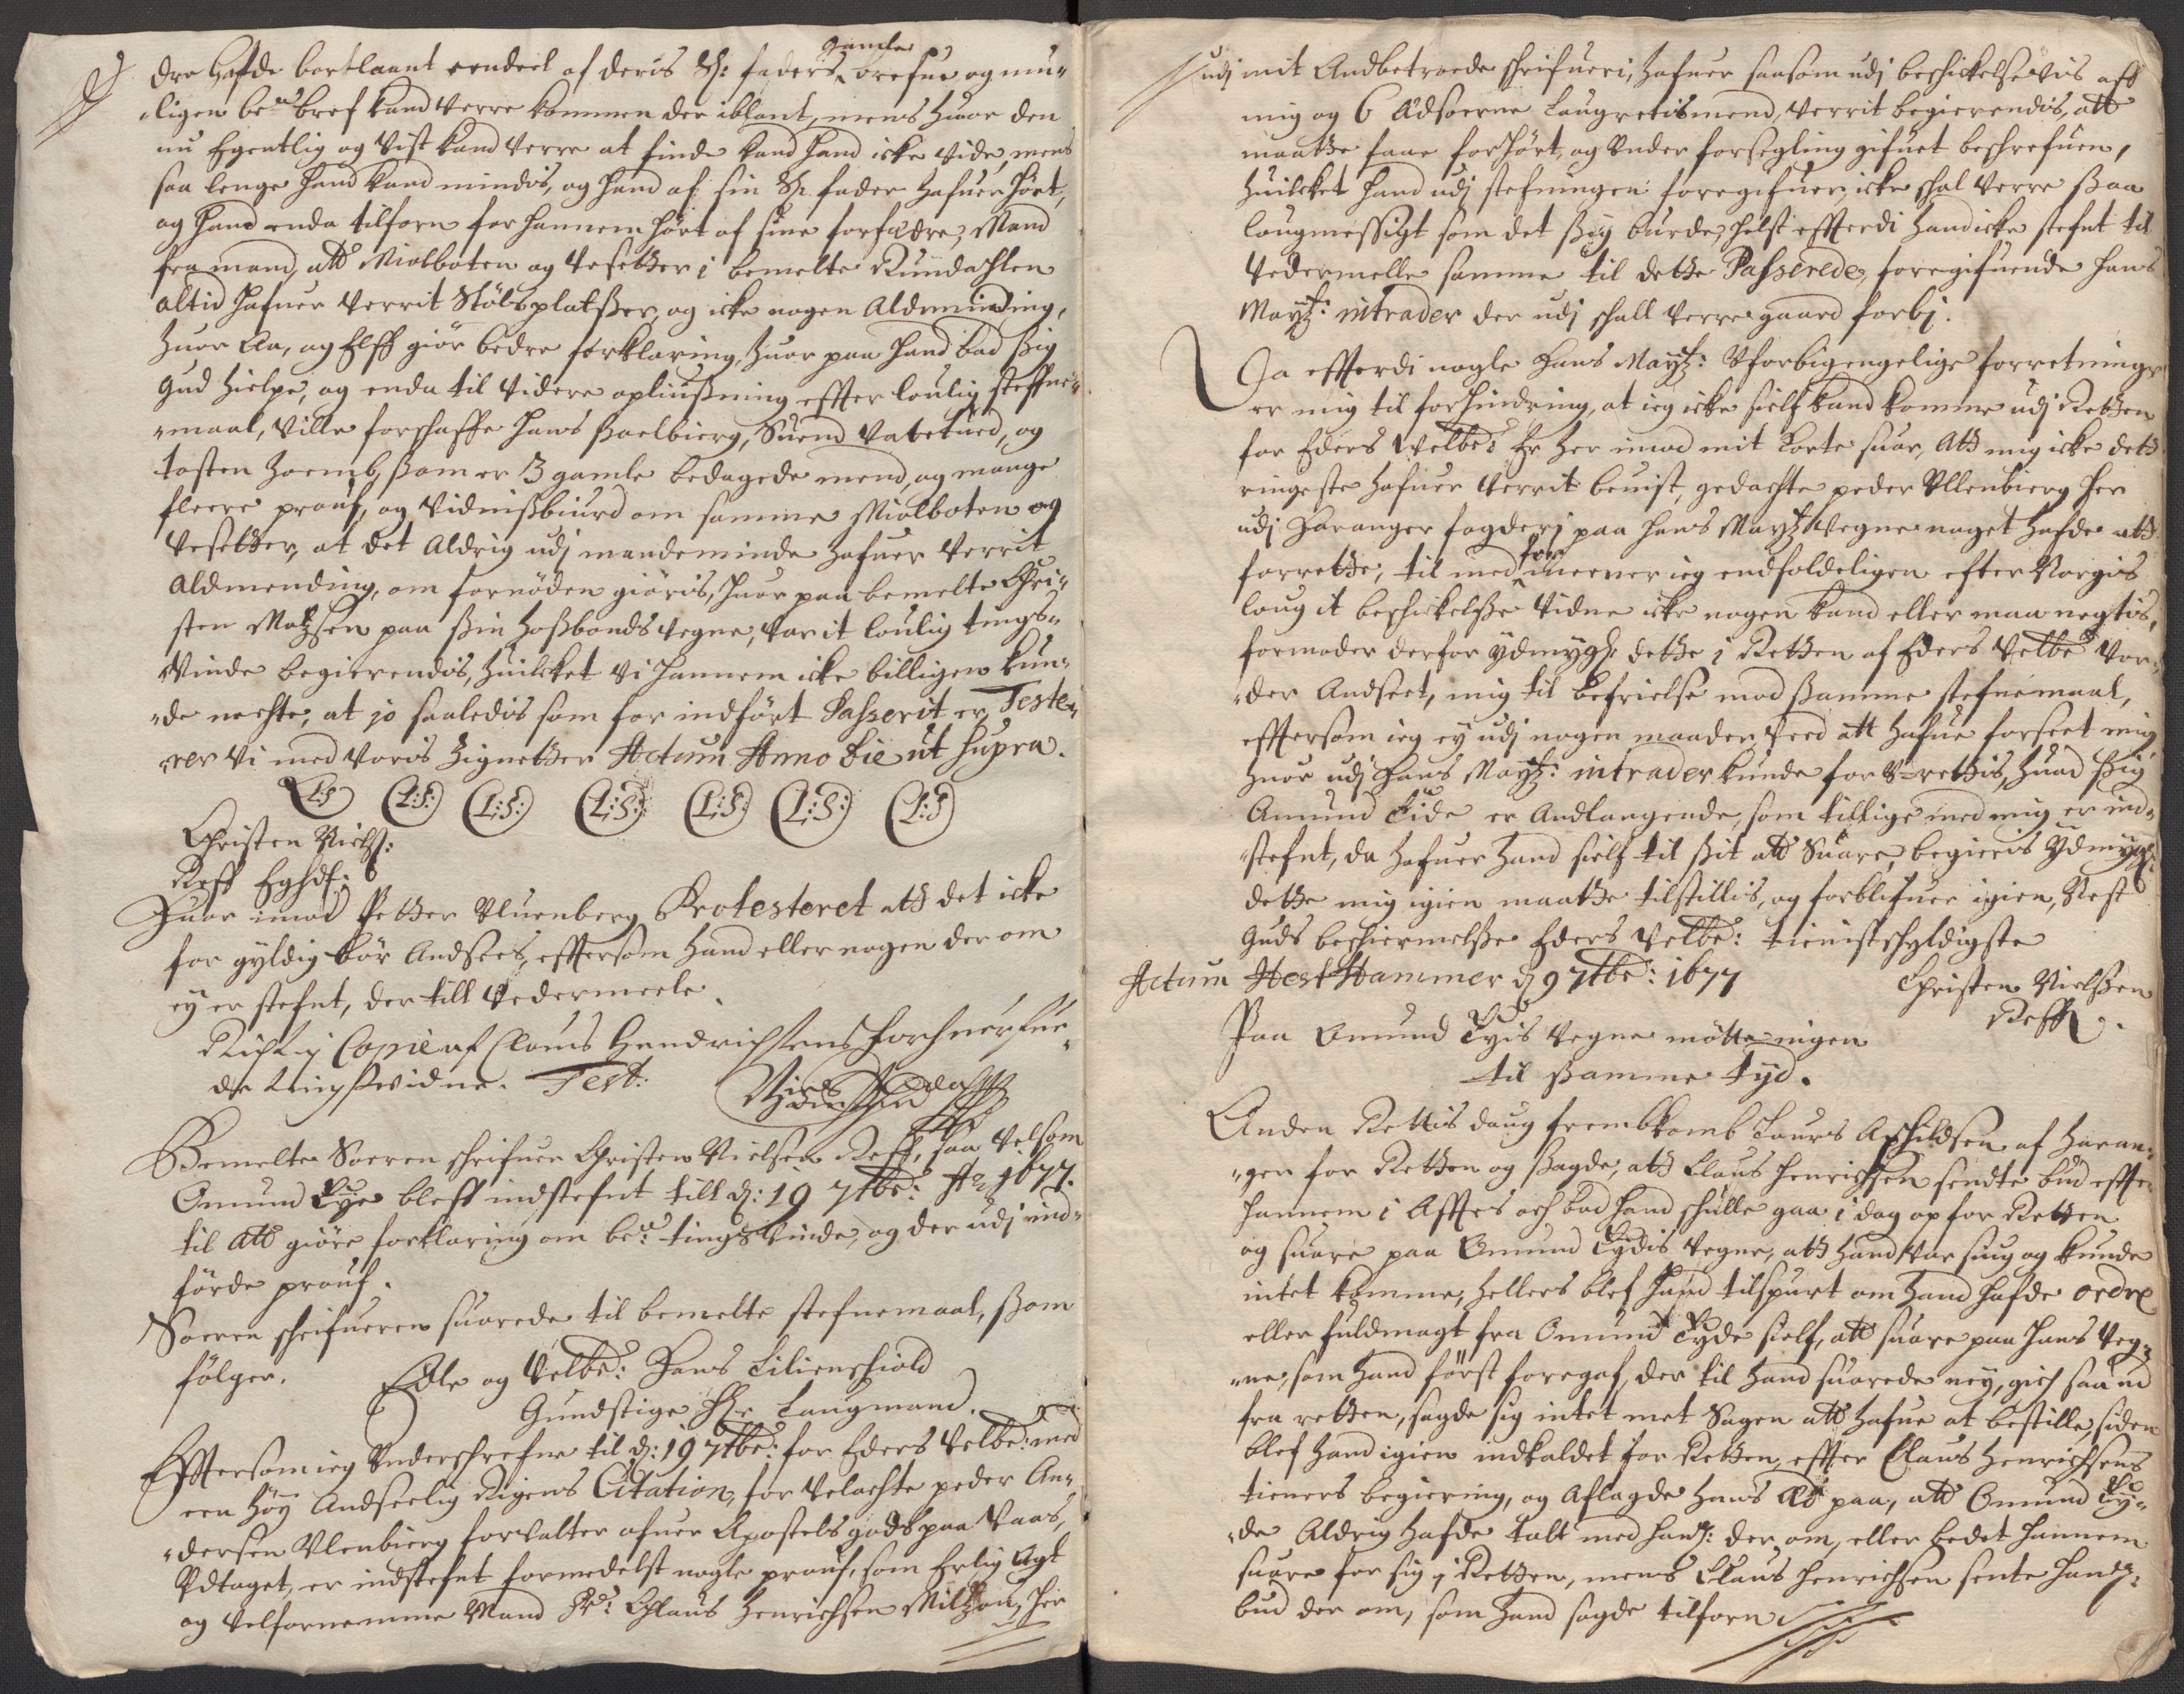 dre hafde bortlaant eendeel af deris Sl: faders gamle brefue og mu-
ligen bete bref kand verre kommen der iblant, mens huor den
nu Egentlig og Vist kand verre at finde kand hand icke vide, mens
saa lenge hand kand mindis, og hand af sin Sl: fader hafuer hört,
og hand enda tilforn for hannem hört af sine forfædre, Mand
fra mand, att Miolboten og Vesetter i bemelte Rundahlen
altid hafuer verrit Stölsplatzer, og icke nogen Aldminding,
huor Aa, og Elff giör bedre forklaring, huor paa hand bad sig
Gud hielpe, og enda til videre opliusning effter loulig steffne-
maal, ville forschaffe hans Saelbierg, Suend Vatetued, og
tosten hoemb, som er 3 gamle bedagede mend, og mange
fleere prouf, og Vidnisbiurd om samme Miolboten og
Vesetter, at det Aldrig udj mandeminde hafuer verrit
Aldmending, om fornöden giöris, huor paa bemelte Chri-
sten Matzsen paa sin hosbonds vegne, var it loulig tings-
Winde begierendis, huilcket vi hannem icke billigen kun-
de nechte, at jo saaledis som for indfört Passerit er, Teste-
rer vi med voris Zignetter Actum Anno Die ut supra.
L:S (L:S:) (L:S:) (L:S:) (L:S:) (L:S:) (L:S)
Christen Niels:
Reff Eghd:
Huor imod Petter Uluenberg Protesteret att det icke
for gyldig bör Andsees, effersom hand eller nogen der om
ey er stefnt, der till Vedermeele.
Richtig Copie af Claus Hendrichsens forhuerfue-
de tingsvidne. Test:
Bemelte Soeren schrifuer Christen Nielsen Reff, saa velsom
Omund Eye bleff indstefnt till d: 19 7tbr: Ao 1677.
til att giöre forklaring om bete tings Vinde, og der udj ind-
förde prouf.
Soeren schrifueren suarede til bemelte stefnemaal, som
fölger.
Edle og Velbe: Hans Lilienschiold
Gundstige Hr Laugmand.
Effersom ieg Underschrefne til d: 19 7tbr: for Eders Velbe: med
een höy Andseelig Rigens Citation, for Velachte peder An-
dersen Ulenbierg forvalter ofuer Apostels gods paa Vaas,
Udtaget, er indstefnt formedelst nogle prouf, som Erlig Agt
og Velfornemme Mand Sr: Claus Henrichsen Miltzou, her
udj mit Andbetroede schrifueri, hafuer saasom udj beschickelsevis aff
mig og 6 Ædsoerne Laugretismend, verrit begierendis, att
maatte faae forhört, og Under forsegling gifuet beschrefuen,
huilcket hand udj stefningen foregifuer, icke schal verre saa
lougmessigt som det sig burde, helst efterdi hand icke stefnt til
Vedermelle samme til dette Passerede, foregifuende hans
Maytz: intrader der udj schall verre gaaed forbj.
Da efterdi nogle Hans Maytz: Uforbigengelige forretninger
er mig til forhindring, at ieg icke sielf kand komme udj Retten
for Eders Velbe: Er her imod mit korte suar, Att mig icke dett
ringeste hafuer verrit beuist, gedachte peder Ullenbierg her
udj Haranger fogderj paa hans Maytz Vegne noget hafde att
forrette, til med for meener ieg endfoldeligen efter Norgis
loug it beschickelsse Vidne icke nogen kand eller maa negtis,
formoder derfor ydmygl: dette i Retten af Eders Velbe vor-
der Andseet, mig til befrielse mod samme stefnemaal,
effersom ieg ey udj nogen maader veed att hafue forseet mig
huor udj Hans Maytz: intrader kunde for U-rettis, huad sig
Amund Eide er Andlangende, som tillige med mig er ind-
stefnt, da hafuer hand sielf til sit att Suare, begieris Ydmygl:
dette mig igien maatte tilstillis, og forblifuer igien, Nest
Guds beschiermelsse Eders Velbe: tienistschyldigste
Actum HestHammer d 9 7tbr: 1677
Christen Nielsen
Reff.
Paa Omund Eyis Vegne mötte ingen
til samme tyd.
Anden Rettis daug frembkomb Laurs Aschildsen af Haran-
ger for Retten og sagde, att Claus Henrichsen sendte bud effter
hannem i Afftes och bad hand schulle gaa i dag op for Retten
og suare paa Omund Eydis Vegne, att hand var siug og kunde
intet komme, hellers blef hand tilspurt om hand hafde ordre
eller fuldmagt fra Omund Eyde sielf, att suare paa hans Veg-
ne, som hand först foregaf, der til hand suarede ney, gich saa ud
fra retten, sagde sig intet met Sagen att hafue at bestille, siden
blef hand igien indkaldet for Retten, effter Claus Henrichsens
tieners begiering, og Aflagde hans Æd paa, att Omund Ey-
de Aldrig hafde talt med han: der om, eller bedet hannem
suare for sig i Retten, mens Claus Henrichsen sente han:
bud der om, som hand sagde tilforn